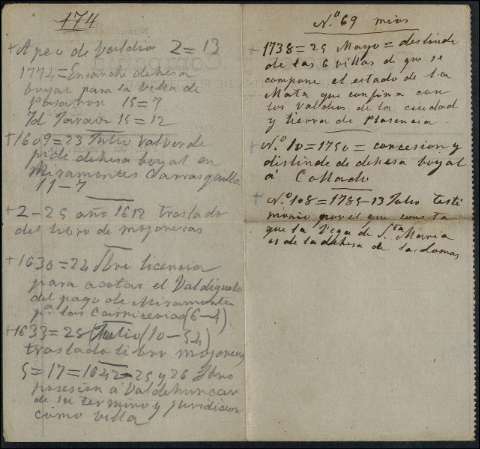 174
+ Apeo de valdio 2 = 13
1774 = Ensanche dehesa
boyal para la villa de
Pasaron 15 = 7
Id Pasaron 15 = 12
+ 1609 = 23 Julio Valverde
pide dehesa boyal en
Miramontes
11-7
+ 2-25 año 1612 traslado
del libro de mojoneras
+ 1630 = 22 licencia
para acotar el
del pago de
pa las carnicerias (6-4)
+ 1633 = 28 (Julio) (10-54)
traslado libro mojoneras
5 = 17 = 1642 = 25 y 26
posesion a Valdehuncar
de su termino y juridicion
como villa
N.º 69 mios
+ 1738 = 25 Mayo = deslinde
de las 6 villas de que se
compone el estado de la
Mata que confina con
los valdios de la ciudad
y tierra de Plasencia.
+ N.º 10 = 1750 = concesion y
deslinde de dehesa boyal
á Collado
+ N.º 108 = 1785 - 13 Julio testi
monio por el que consta
que la Vega de S.ta Maria
es de la dehesa de las lomas